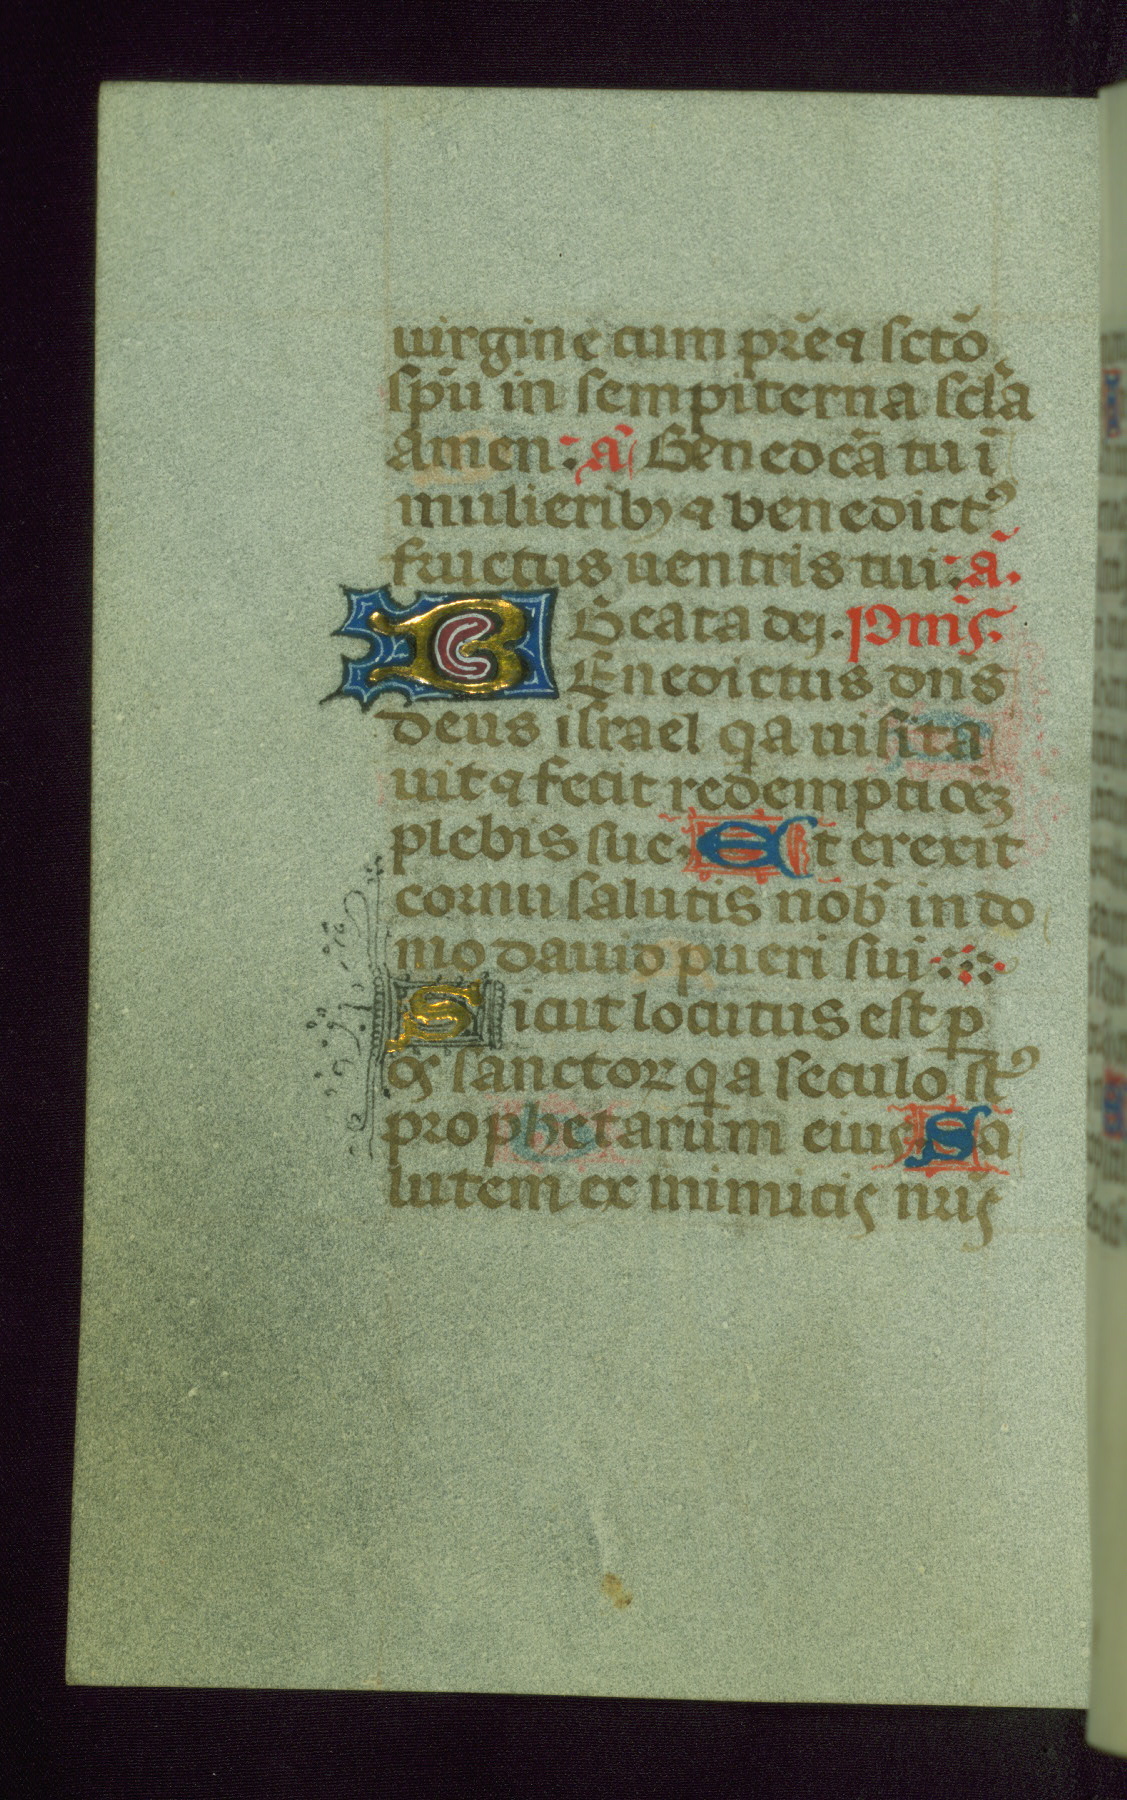 uirgine cum pr̄e ⁊ sctō
sp̄u in sempiterna scl̄a
amen: a᷈ Benedcā tu ī
mulierib⁊ ⁊ benedictꝰ
fructus uentris tui: a᷈.
Beata dei. Pm̄s.
BEnedictus dn̄s
deus israel qa uisita
uit ⁊ fecit redemptiōeꝫ
plebis sue. Et erexit
cornu salutis nob̄ in do
mo dauid pueri sui
Sicut locutus est ꝑ
os sanctoꝝ q a seculo st̄ꝰ
prophetarum eius Sa
lutem ex inimicis nr̄is